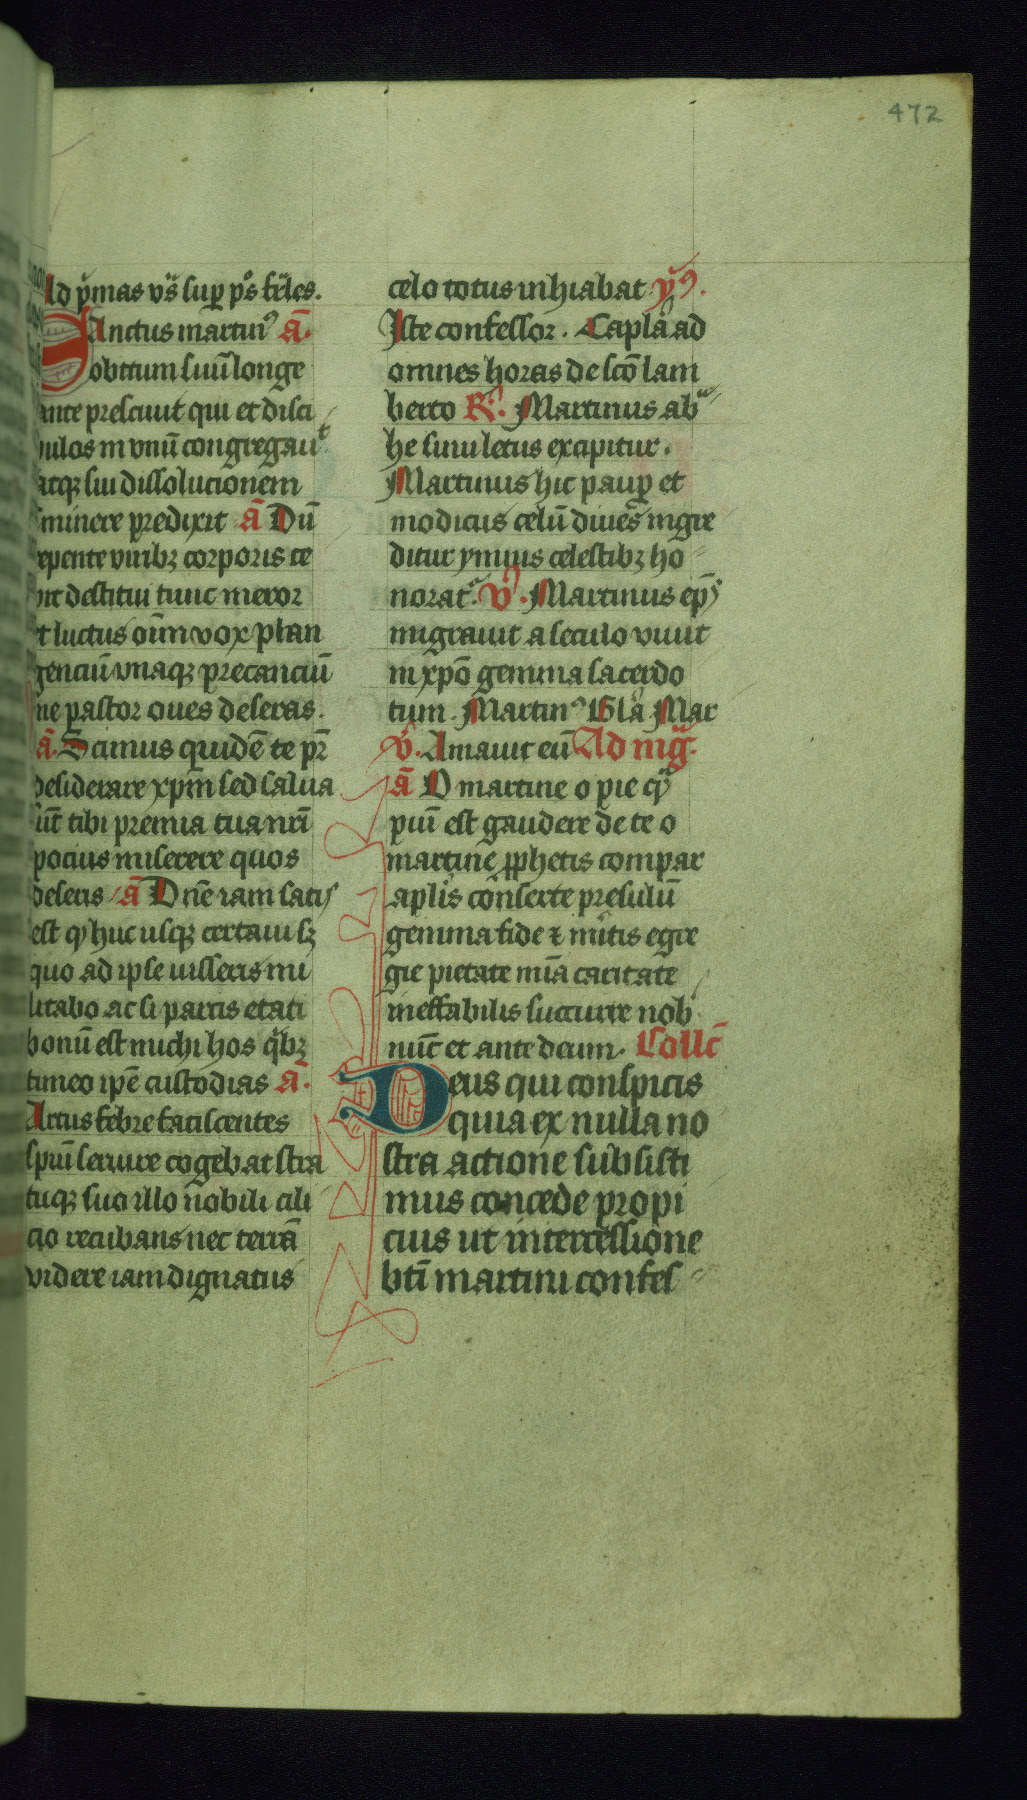 472
Ad p̄mas vs̄ sup ps̄ fēles.
SAnctus martinꝰ ā.
obitum suū longe
ante presciuit qui et disci
pulos in vnū congregauͭ
atqꝫ sui dissolucionem
īminere predixit ā Dū
repente viribꝫ corporis ce
pit destitui tunc meror
et luctus oīm vox plan
genciū vnaqꝫ precanciū
ne pastor oues deseras.
ā. Scimus quidē te pr̄
desiderare xp̄m sed salua
sūt tibi premia tua nr̄i
pocius miserere quos
deseris ā Dn̄e iam satis
est ꝙ huc usqꝫ certaui sꝫ
quo ad ipse iusseris mi
litabo ac si parcis etati
bonū est michi hos qͥbꝫ
timeo ip̄e custodias ā.
Artus febre fatiscentes
sp̄ui seruire cogebat stra
tuqꝫ suo illo nobili cili
cio recubans nec terrā
videre iam dignatus
celo totus inhiabat yꝰ.
Iste confessor. Capl̄a ad
omnes horas de sc̄o lam
berto R̄. Martinus ab
he sinu letus excipitur.
Martinus hic paup et
modicus celū diues ingre
ditur ymnis celestibꝫ ho
norat᷑. V̄. Martinus ep̄s
migrauit a seculo viuit
in xp̄o gemma sacerdo
tum. Martinꝰ Gl̄a Mar
v̄. Amauit eū Ad mḡ.
ā O martine o pie qͣ
piū est gaudere de te o
martine ꝓphetis compar
apl̄is conserte presulū
gemma fide ⁊ mītis egre
gie pietate mīa caritate
ineffabilis succurre nob
nūc et ante deum. Coll̄c
Deus qui conspicis
quia ex nulla no
stra actione subsisti
mus concede propi
cius ut intercessione
bt̄i martini confes